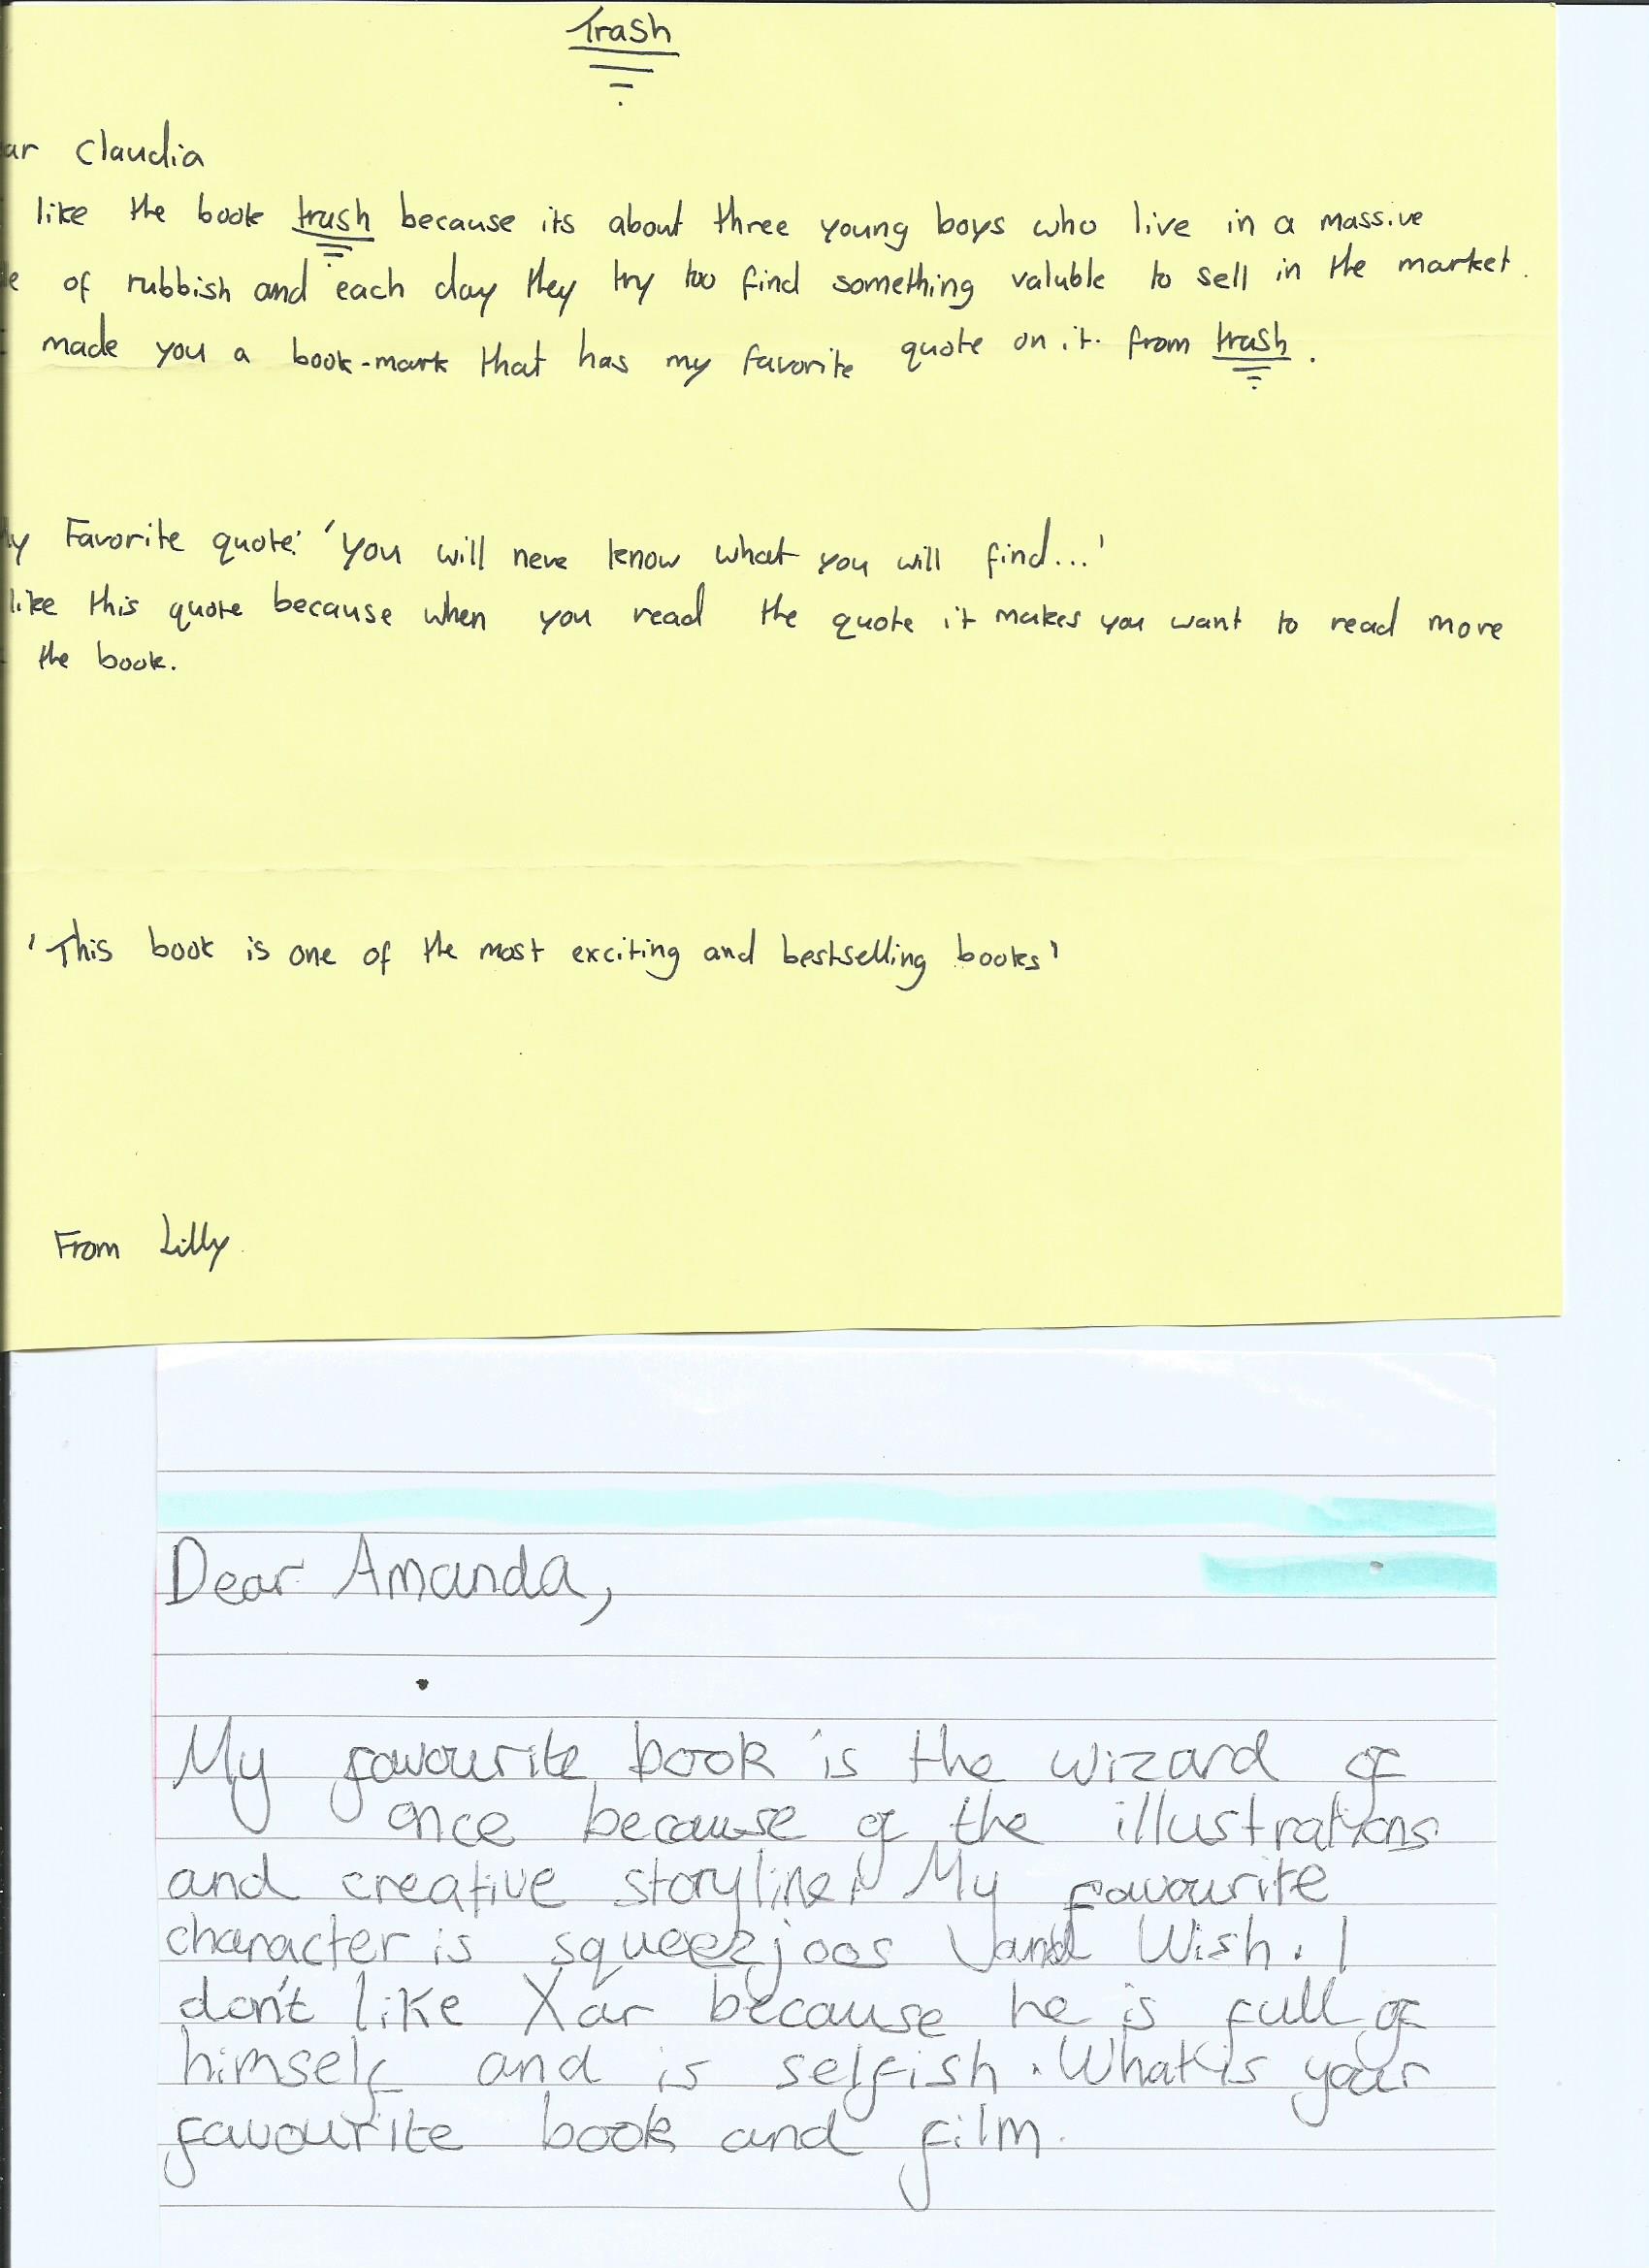 Trash
ar Claudia
like the book trash because its about three young boys who live in a massive
e of rubbish and each day they try too find something valuble to sell in the market.
made you a book-mark that has my favorite quote on it. from trash.
y Favorite quote: 'you will neve know what you will find...'
like this quote because when you read the quote it makes you want to read more
the book.
'This book is one of the most exciting and bestselling books'
From Lilly
Dear Amanda,
My favourite book is the wizard of
once because of the illustrations
and creative storyline! My favourite
character is squeezjoos and Wish. I
don't like Xar because he is full of
himself and is selfish. What is your
favourite book and film.